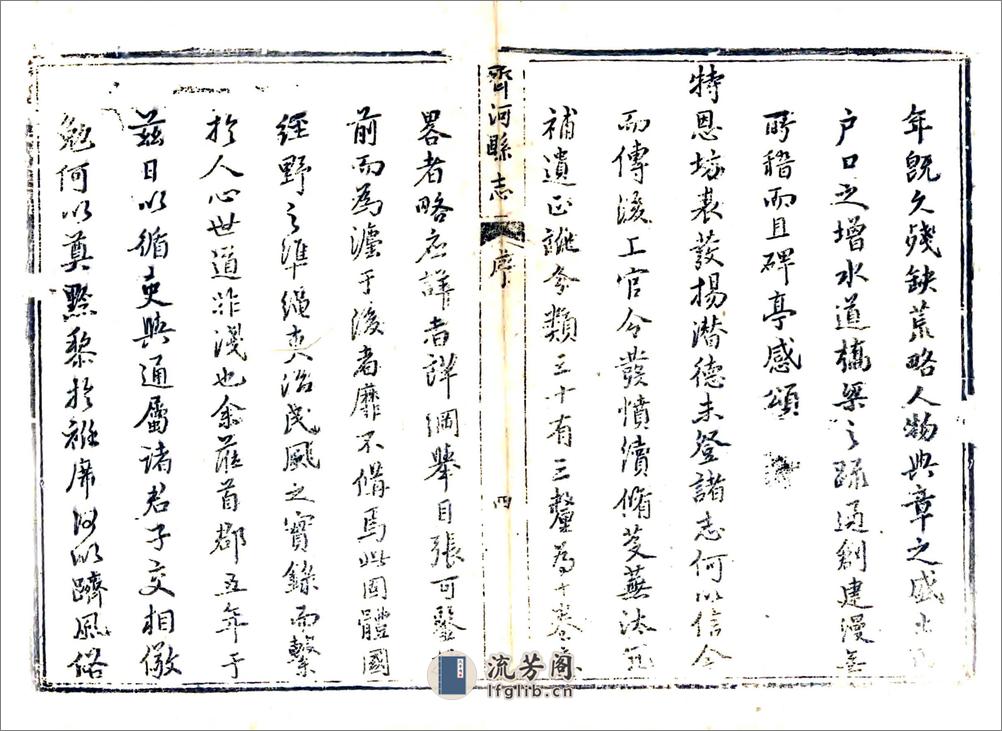 年既久殘缺荒略人物典章之盛土
戶口之增水道橋梁之疏通創建漫無
所稽而且碑亭感頌
特恩坊表發揚潛德未登諸志何以信今
而傳後工官令發憤續脩芟蕪汰冗
補遺正訛分類三十有三釐為十卷應
齊河縣志 序 四
畧者略應詳者詳綱舉目張可鑒
前而為法于後者靡不備焉此固體國
經野之準繩吏治民風之實錄而繫
於人心世道非淺也余蒞首郡五年于
茲日以循吏與通屬諸君子交相儆
勉何以奠黔黎於袵席何以躋風俗
流芳阁
lfglib.cn